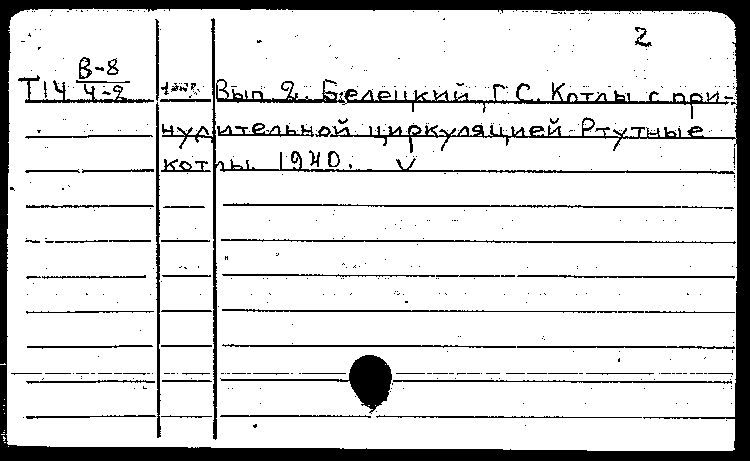 2
В-8
Т14 4-2 Вып 2. Белецкий, Г.С. Котлы с при-
нудительной циркуляцией Ртутные
котлы. 1940. V